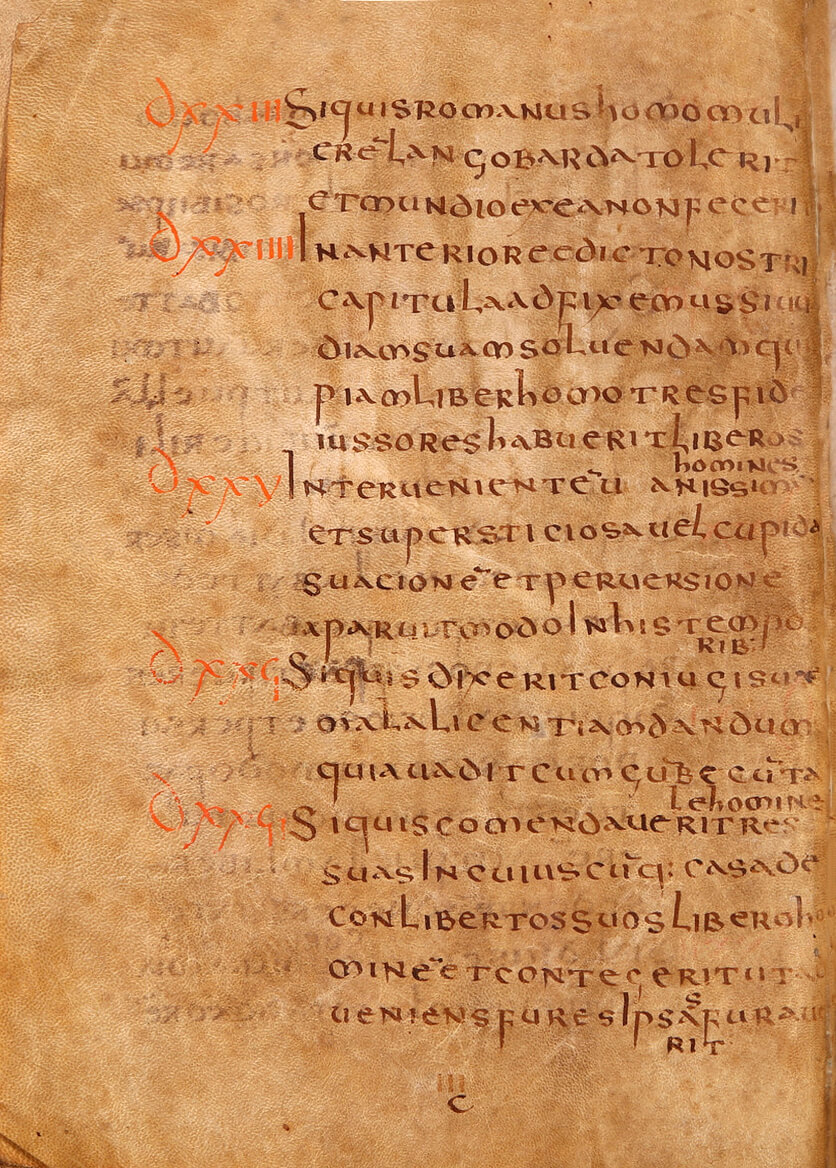 Dxxiii Siquisromanushomomuli
erēlangobardatolerit
etmundioexeanonfeceri
Dxxiiii Inanterioreedictonostri
capitulaadfixemussiuu
diamsuamsoluendamqu
piamliberhomotresfide
iussoreshabueritliberos
homines
Dxxv Interuenientēu anissim
etsupersticiosauelcupida
suacionēetperuersione
aparuitmodoInhistempo
rib:
Dxxϛi Siquisdixeritconiugisuae
malalicentiamdandum
quiauaditcumgūbecūta
lehomine
Dxxϛi Siquiscomendaueritres
suasIncuiuscūq: casade
conlibertossuosliberosho
minēetcontegerituta
s
ueniensfuresIpsafurau
rit
iii
c